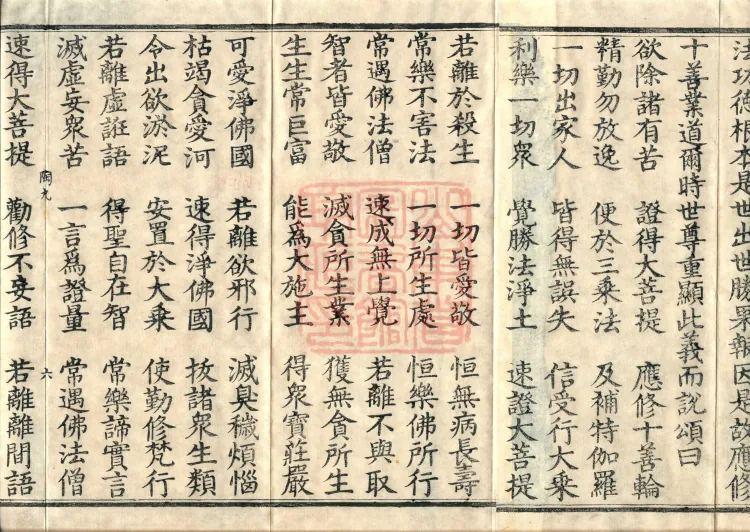 法功德根本是世出世勝果報因是故應修
十善業道爾時世尊重顯此義而說頌曰
欲除諸有苦 證得大菩提 應修十善輪
精勤勿放逸 便於三乘法 及補特伽羅
一切出家人 皆得無誤失 信受行大乘
利樂一切眾 覺勝法淨土 速證大菩提
若離於殺生 一切皆愛敬 恒無病長壽
常樂不害法 一切所生處 恒樂佛所行
常遇佛法僧 速成無上覺 若離不與取
智者皆愛敬 滅貪所生業 獲無貪所生
生生常巨富 能為大施主 得眾寶莊嚴
可愛淨佛國 若離欲邪行 滅臭穢煩惱
枯竭貪愛河 速得淨佛國 拔諸眾生類
令出欲淤泥 安置於大乘 使勤修梵行
若離虛誑語 得聖自在智 常樂諦實言
滅虛妄眾苦 一言為證量 常遇佛法僧
陶九 六
速得大菩提 勤修不妄語 若離離間語